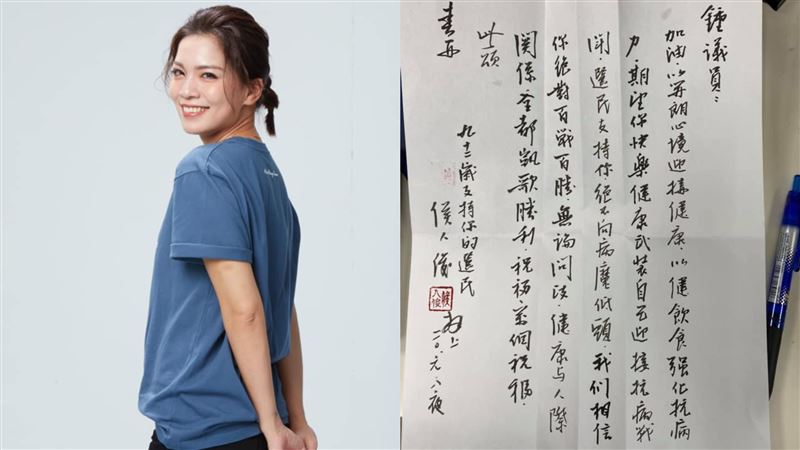 鍾議員：
加油·以开朗心境迎接健康·以健飲食强化抗病
力·期望你快樂健康武裝自己迎接抗病戰
鬥·選民支持你絕不向病魔低頭·我们相信
你絕對百戰百勝·無論问政·健康与人際
関係·全都凱歌勝利·祝福萬個祝福·
此頌
春安
九十二歲支持你的選民
侯人俊
上
八夜